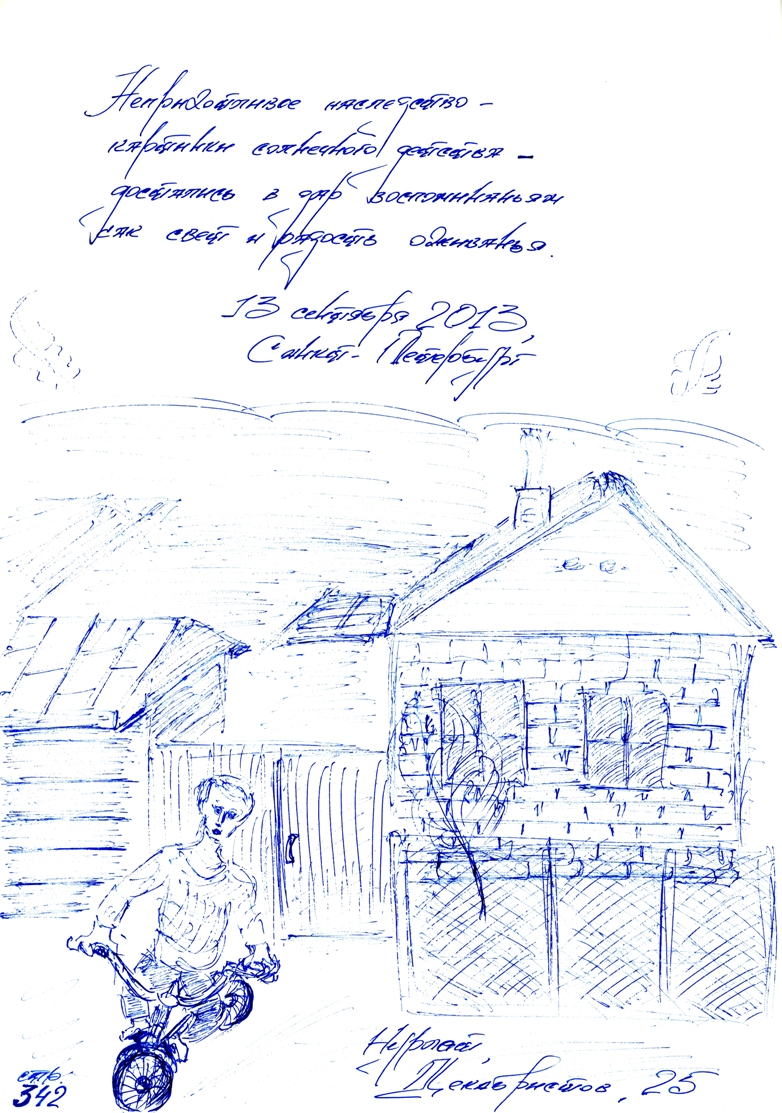 Неприхотливое наследство –
картинки солнечного детства –
достались в дар воспоминаньям
как свет и радость оживанья.
13 сентября 2013,
Санкт-Петербург
Нурлат,
Декабристов, 25
стр.
342